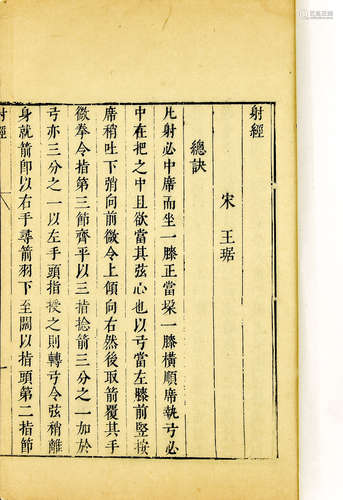 射經
宋 王琚
總訣
凡射必中席而坐一膝正當垛一膝橫順席執弓必
中在把之中且欲當其弦心也以弓當左膝前竪按
席稍吐下弰向前微令上傾向右然後取箭覆其手
微拳令指第三節齊平以三指捻箭三分之一加於
弓亦三分之一以左手頭指捘之則轉弓令弦稍離
身就箭即以右手尋箭羽下至闊以指頭第二指節
射經